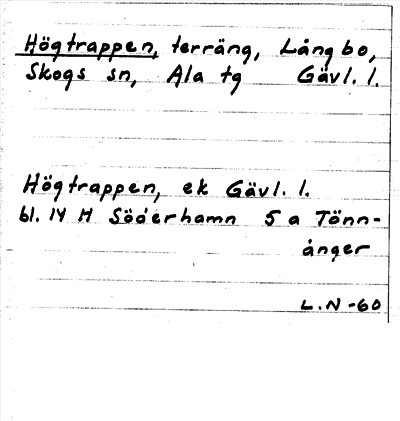 Högtrappen, terräng, Långbo,
Skogs sn, Ala tg Gävl. l.
Högtrappen, ek Gävl. l.
bl. 14 H Söderhamn 5 a Tönn-
ånger
L.N-60